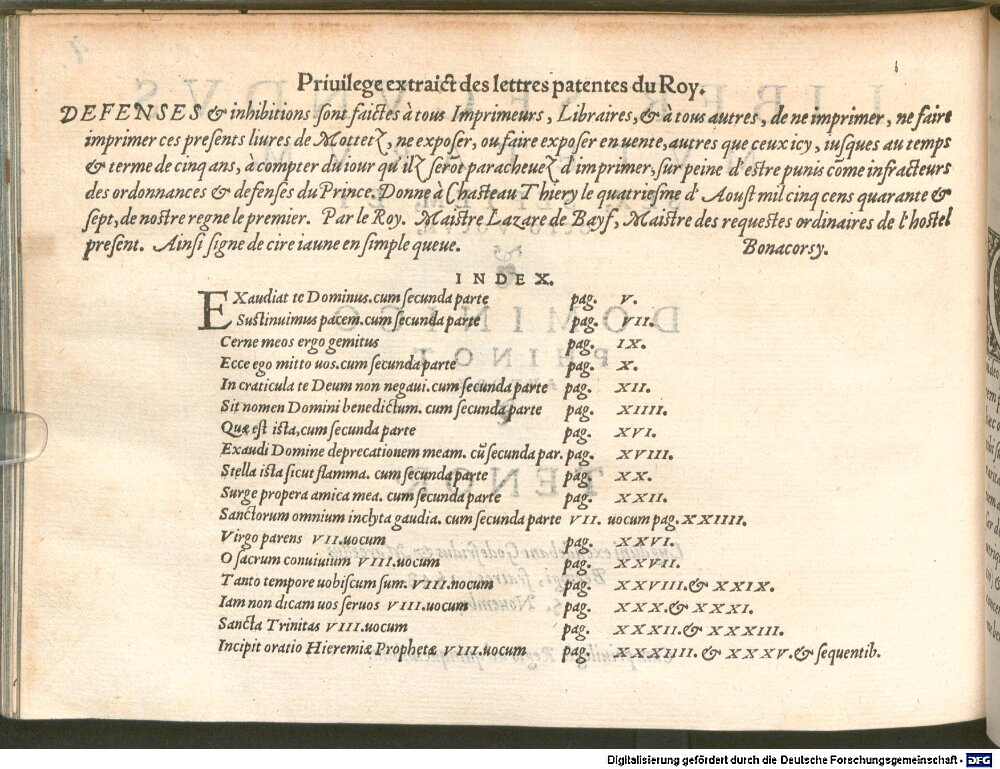 Priuilege extraict des lettres patentes du Roy.
DEFENSES & inhibitions sont faictes à tous Imprimeurs, Libraires, & à tous autres, de ne imprimer, ne faire
imprimer ces presents liures de Mottetz, ne exposer, ou faire exposer en uente, autres que ceux icy, iusques au temps
& terme de cinq ans, a compter du iour qu'ilz serõt paracheuez d'imprimer, sur peine d'estre punis cõme infracteurs
des ordonnances & defenses du Prince. Donne à Chasteau Thiery le quatriesme d'Aoust mil cinq cens quarante &
sept, de nostre regne le premier. Par le Roy. Maistre Lazare de Bayf, Maistre des requestes ordinaires de l'hostel
present. Ainsi signe de cire iaune en simple queue. Bonacorsy.
INDEX.
EXaudiat te Dominus. cum secunda parte pag. V.
Sustinuimus pacem. cum secunda parte pag. VII.
Cerne meos ergo gemitus pag. IX.
Ecce ego mitto uos. cum secunda parte pag. X.
In craticula te Deum non negaui. cum secunda parte pag. XII.
Sit nomen Domini benedictum. cum secunda parte pag. XIIII.
Quæ est ista, cum secunda parte pag. XVI.
Exaudi Domine deprecationem meam. cũ secunda par. pag. XVIII.
Stella ista sicut flamma. cum secunda parte pag. XX.
Surge propera amica mea. cum secunda parte pag. XXII.
Sanctorum omnium inclyta gaudia. cum secunda parte VII. uocum pag. XXIIII.
Virgo parens VII. uocum pag. XXVI.
O sacrum conuiuium VIII. uocum pag. XXVII.
Tanto tempore uobiscum sum. VIII. nocum pag. XXVIII. & XXIX.
Iam non dicam uos seruos VIII. uocum pag. XXX. & XXXI.
Sancta Trinitas VIII. uocum pag. XXXII. & XXXIII.
Incipit oratio Hieremiæ Prophetæ VIII. uocum pag. XXXIIII. & XXXV. & sequentib.
Digitalisierung gefördert durch die Deutsche Forschungsgemeinschaft - DFG